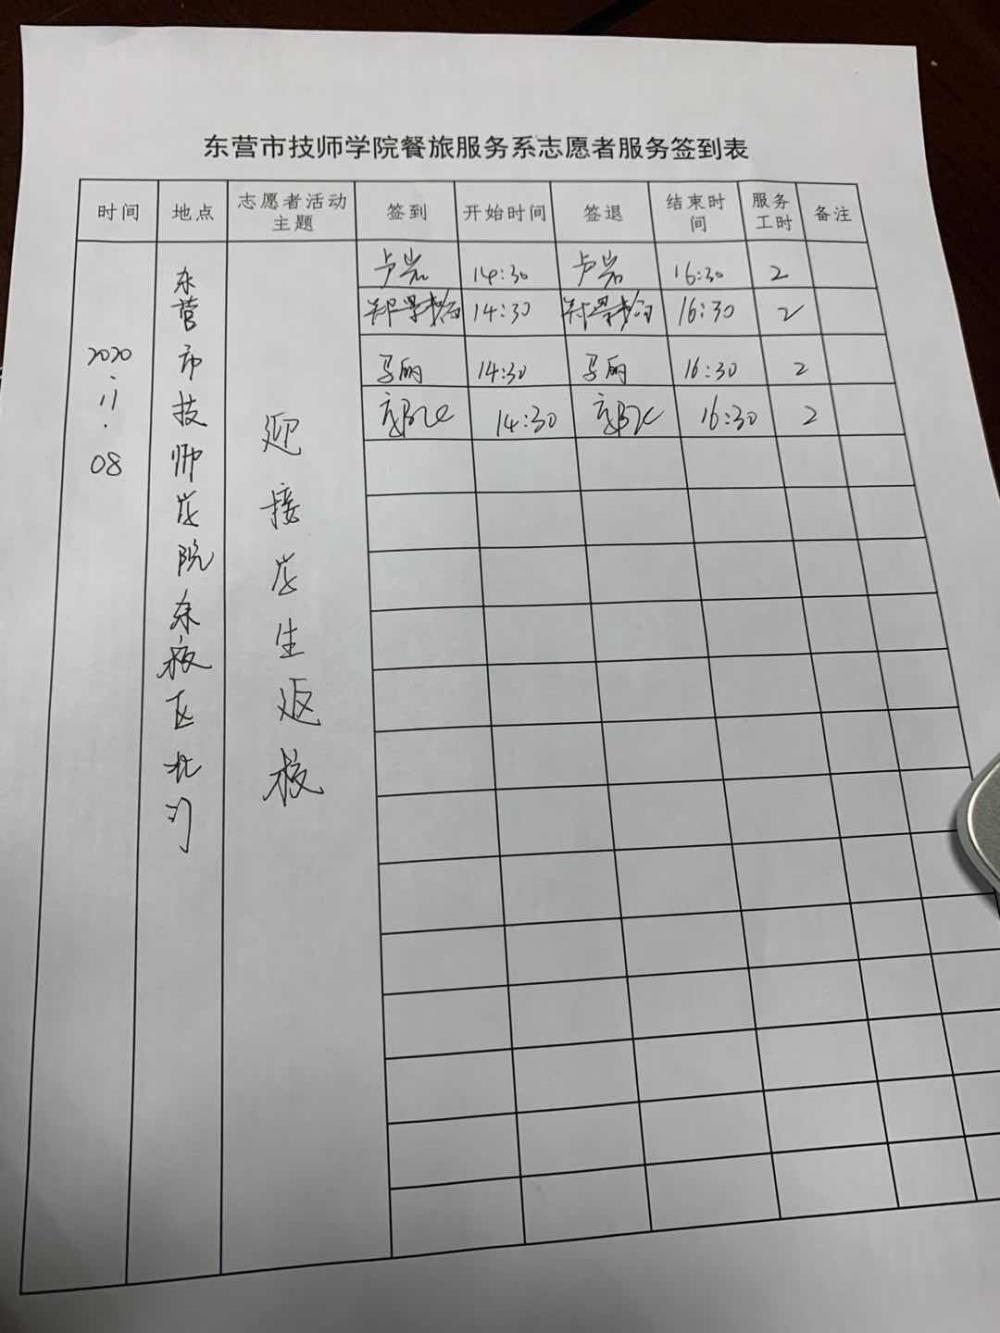 东营市技师学院餐旅服务系志愿者服务签到表
时间 地点 志愿者活动主题 签到 开始时间 签退 结束时间 服务工时 备注
2020.11.08
东营市技师学院东校区北门
迎接学生返校
卢岩 14:30 卢岩 16:30 2
14:30 16:30 2
马丽 14:30 马丽 16:30 2
14:30 16:30 2